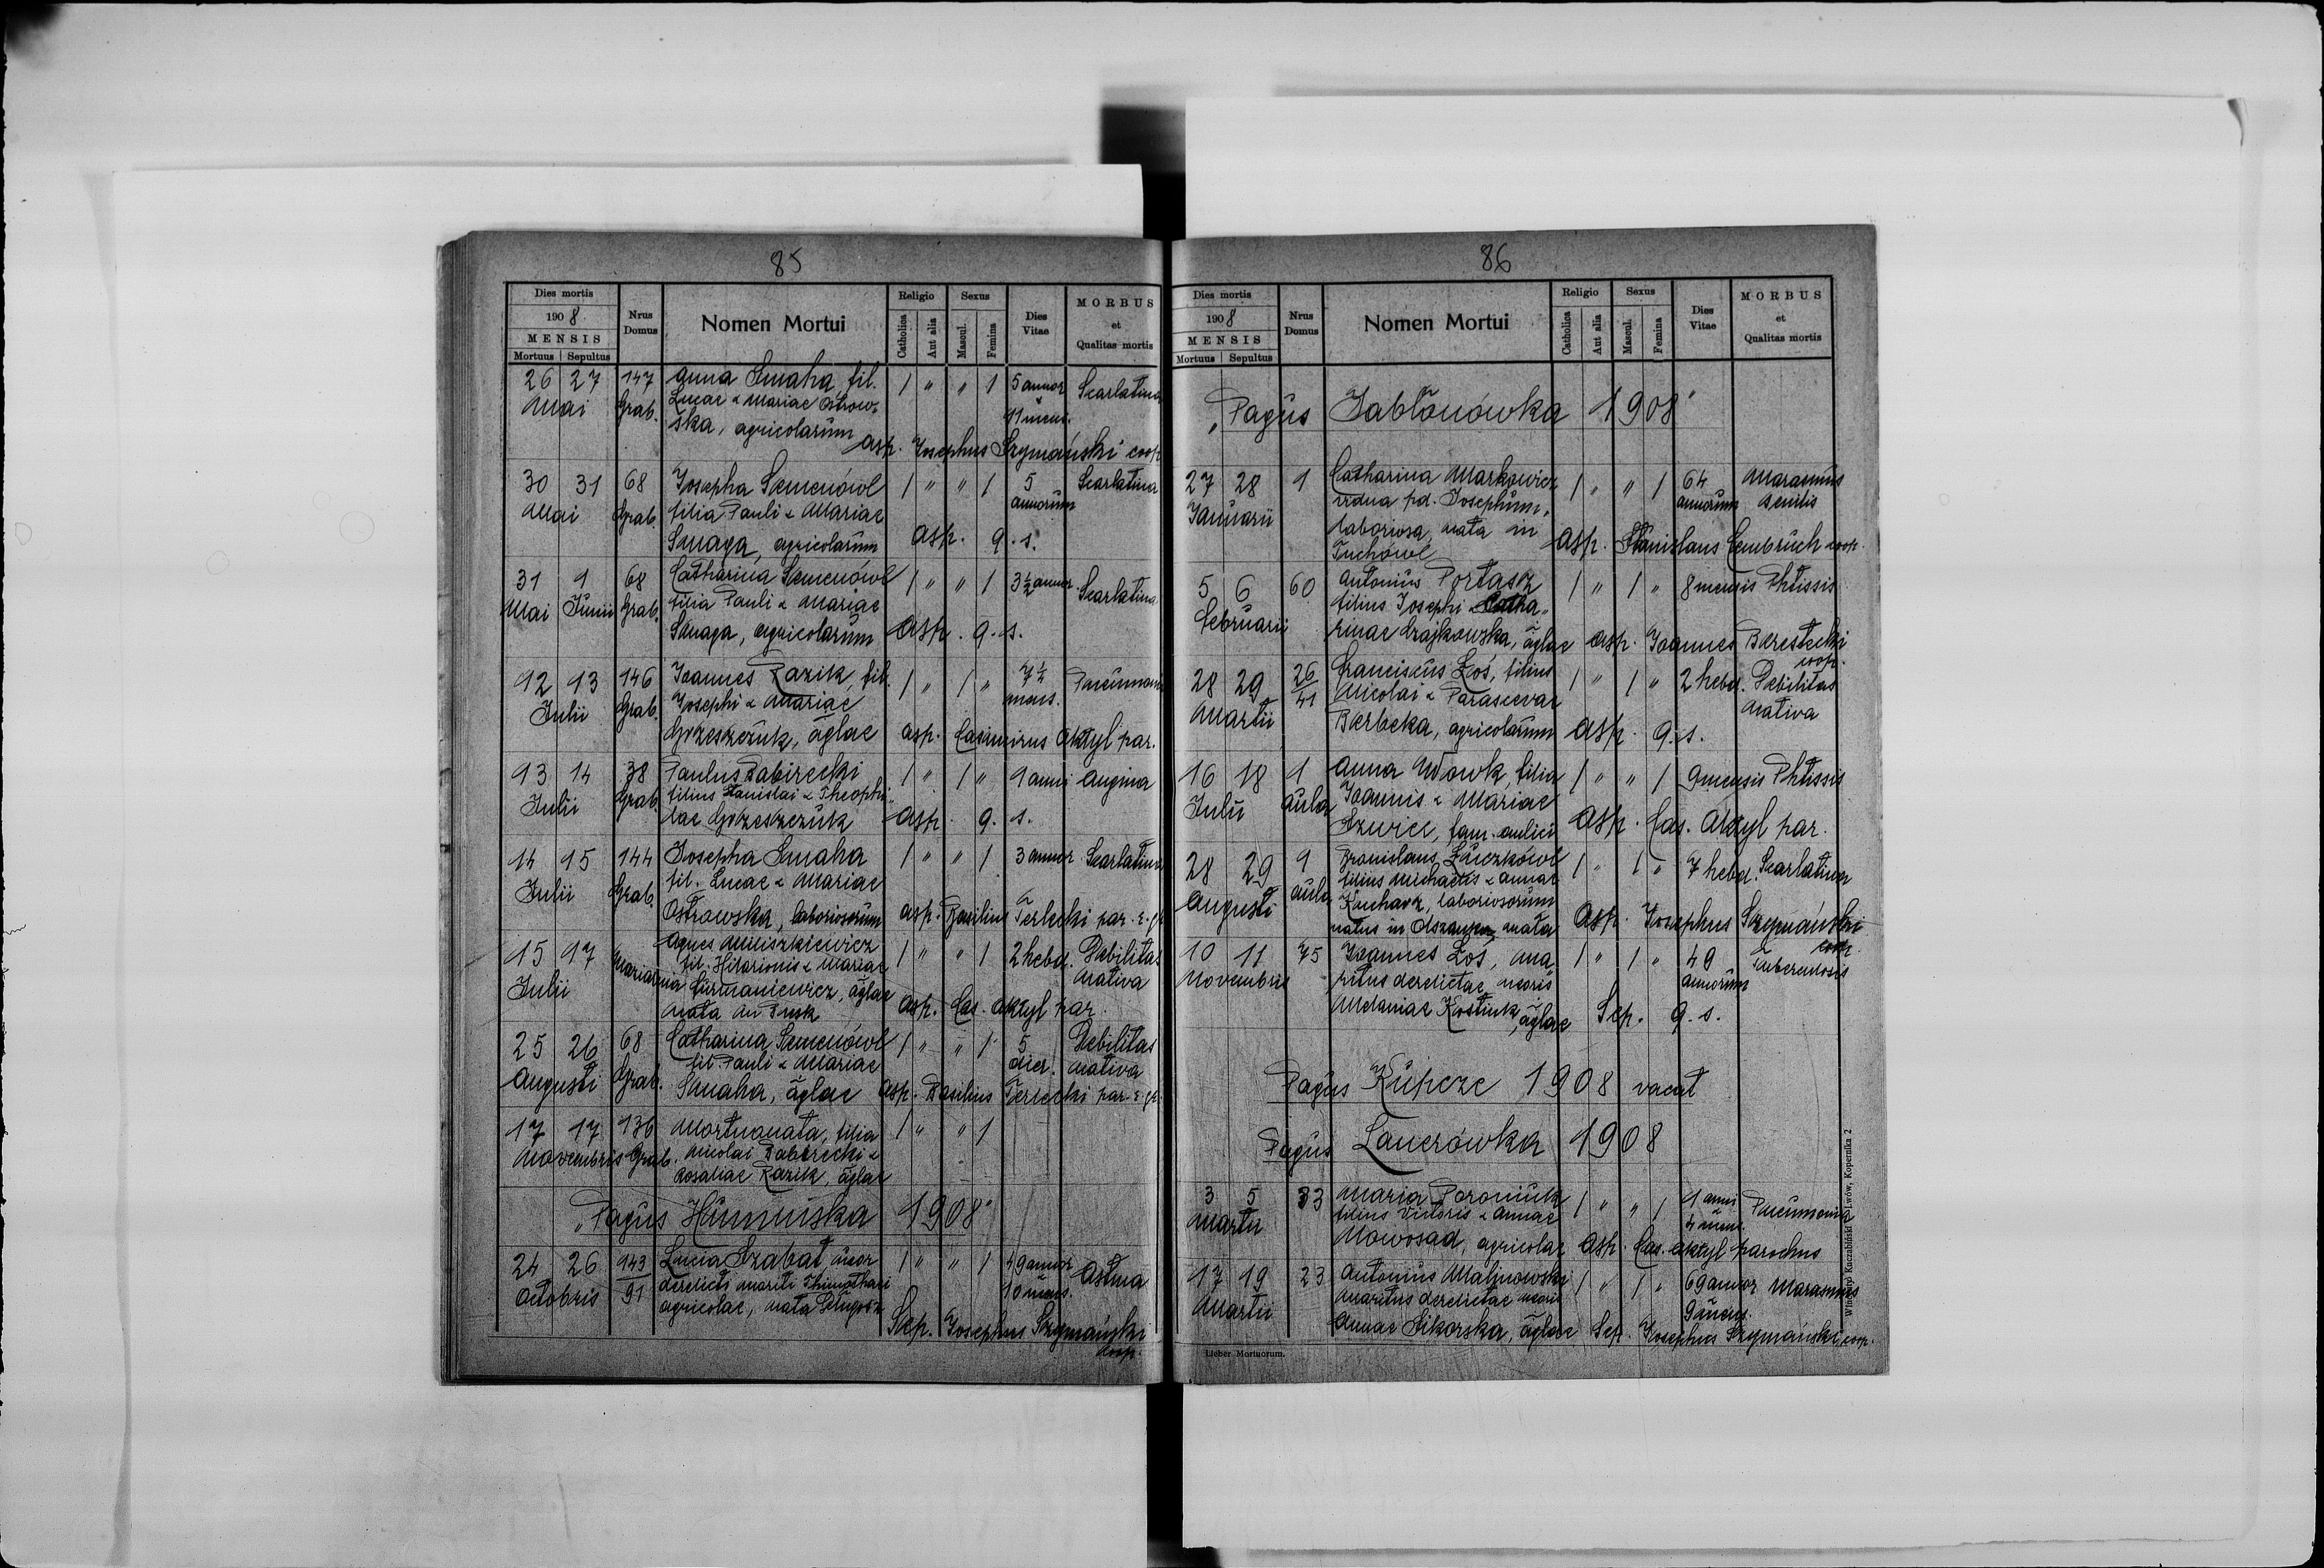 85
Dies mortis
1908
MENSIS
Mortuus Sepultus
Nrus Domus
Nomen Mortui
Religio
Catholica Aut alia
Sexus
Mascul. Femina
Dies Vitae
MORBUS
et
Qualitas mortis
26 27 147 Anna Smaha, fil. 1 " " 1 5 annor Scarlatina
Mai Grab. Lucae & Mariae Ostrow- 11 mens.
ska, agricolarum
asp. Josephus Szymański coop
30 31 68 Josepha Semenówl 1 " " 1 5 Scarlatina
Mai Grab. filia Pauli & Mariae annorum
Smaga, agricolarum asp. q. s.
31 1 68 Catharina Semenówl 1 " " 1 3½ annor. Scarlatina
Mai Junii Grab. filia Pauli & Mariae
Smaga, agricolarum asp. q. s.
12 13 146 Joannes Razik, fil. 1 " 1 " 7½ Pneumonia
Julii Grab. Josephi & Mariae mens.
Grzeszczuk, aglae asp. Casimirus Aktyl par.
13 14 38 Paulus Babirecki 1 " 1 " 1 anni Angina
Julii Grab. filius Stanislai & Theophi-
lae Grzeszczuk asp. q. s.
14 15 144 Josepha Smaha 1 " " 1 3 annor Scarlatina
Julii Grab. fil. Lucae & Mariae
Ostrowska, laboriosorum asp. Basilius Terlecki par. r. gr.
15 17 Agnes Miliszkiewicz 1 " " 1 2 hebd. Debilitas
Julii fil. Hilarionis & Mariae nativa
Furmaniewicz, aglae
nata in Pusk asp. Cas. Aktyl par.
25 26 68 Catharina Semenówl 1 " " 1 5 Debilitas
Augusti Grab. fil. Pauli & Mariae dier. nativa
Smaha, aglae asp. Basilius Terlecki par. r. gr.
17 17 136 Mortuanata, filia 1 " " 1
Novembris Grab. Nicolai Babirecki &
Rosaliae Razik, aglae
"Pagus Humniska 1908"
24 26 143 Lucia Szabat uxor 1 " " 1 49 annor Astma
Octobris 91 derelicti mariti Thimothaei 10 mens.
agricolae, nata Długosz
Sep. Josephus Szymański
coop.
86
Dies mortis
1908
MENSIS
Mortuus Sepultus
Nrus Domus
Nomen Mortui
Religio
Catholica Aut alia
Sexus
Mascul. Femina
Dies Vitae
MORBUS
et
Qualitas mortis
"Pagus Jabłonówka 1908"
27 28 1 Catharina Markowicz 1 " " 1 64 Marasmus
Januarii vidua pd. Josephum, annorum senilis
laboriosa, nata in
Tuchówl asp. Stanislaus Cembruch coop.
5 6 60 Antonius Portasz 1 " 1 " 8 mensis Phtissis
Februarii filius Josephi & Catha-
rinae Czajkowska, aglae asp. Joannes Berestecki
coop.
28 29 26/41 Franciscus Łoś, filius 1 " 1 " 2 hebd. Debilitas
Martii Nicolai & Parascevae nativa
Berbeka, agricolarum asp. q. s.
16 18 1 Anna Wowk, filia 1 " " 1 9 mensis Phtissis
Julii aula Joannis & Mariae
Szwiec, fam. aulici asp. Cas. Aktyl par.
28 29 1 Bronislaus Łuczkówl 1 " 1 " 7 hebd. Scarlatina
Augusti aula filius Michaelis & Annae
Kucharz, laboriosorum
natus in asp. Josephus Szymański
coop.
10 11 75 Joannes Łoś, ma- 1 " 1 " 49 Tuberculosis
Novembris ritus derelictae uxoris annorum
Melaniae Kostiuk, aglae Sep. q. s.
Pagus Kupcze 1908 vacat
Pagus Lanerówka 1908
3 5 33 Maria Poroniuk 1 " " 1 1 anni Pneumonia
Martii filius Victoris & Annae 4 mens.
Nowosad, agricolae asp. Cas. Aktyl parochus
17 19 23 Antonius Malinowski 1 " 1 " 69 annor Marasmus
Martii maritus derelictae uxoris 9 mens.
Annae Sikorska, aglae Sep. Josephus Szymański, coop.
Lieber Mortuorum.
Wincenty Kuczabiński Lwów, Kopernika 2